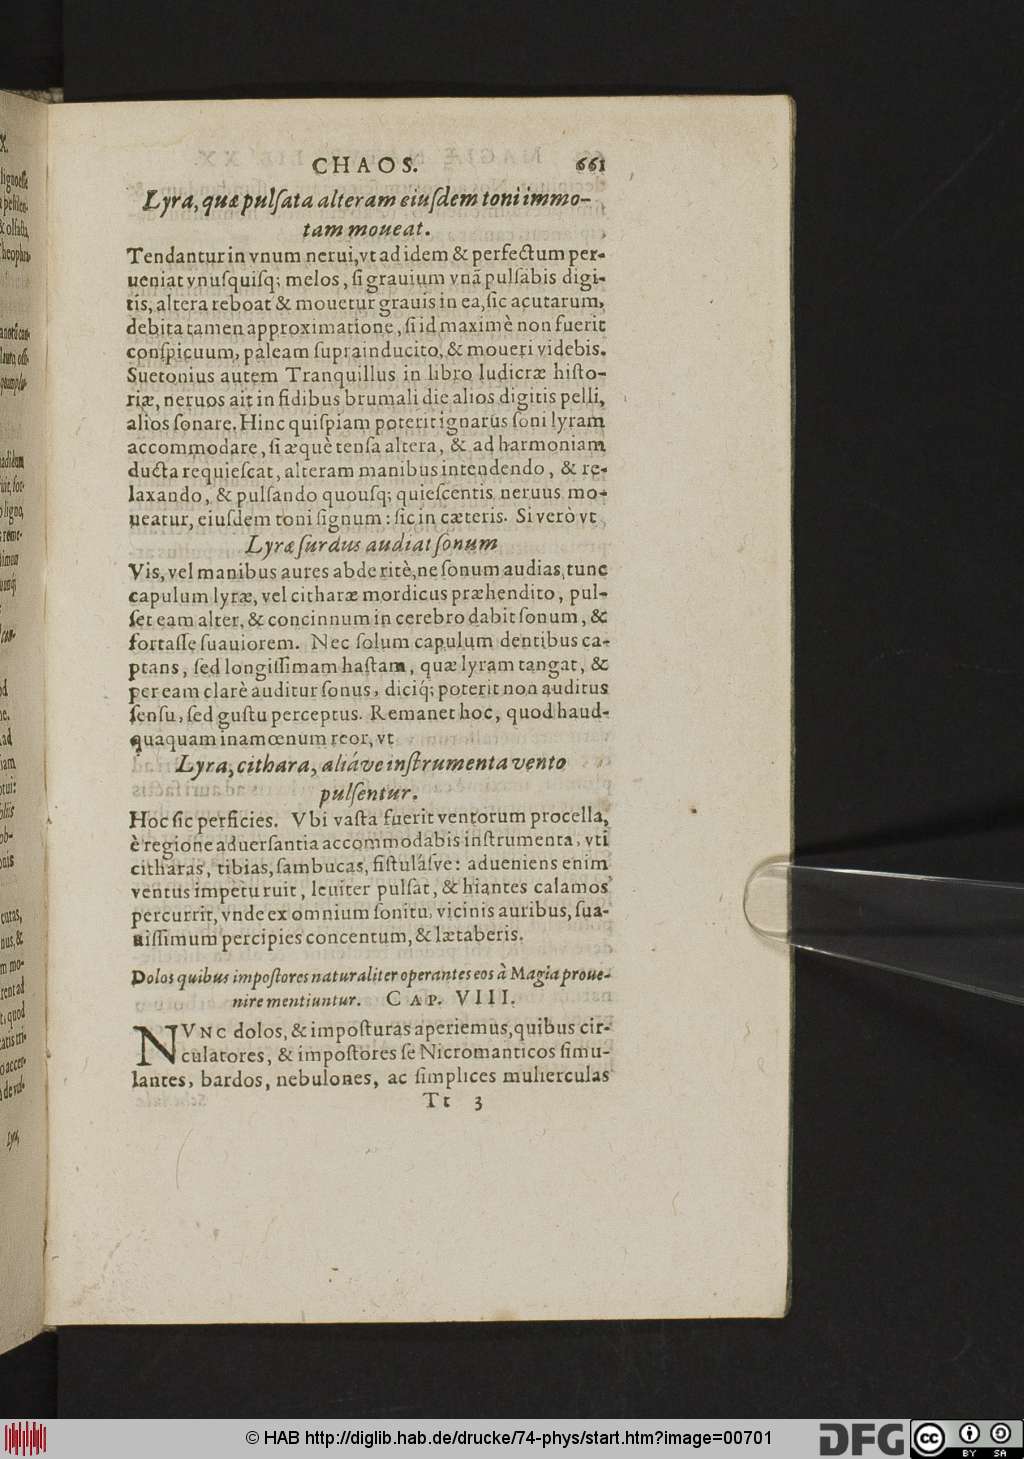 CHAOS. 661
Lyra, quæ pulſata alteram eiuſdem toni immo-
tam moueat.
Tendantur in vnum nerui, vt ad idem & perfectum per-
ueniat vnuſquiſq; melos, ſi grauium vnã pulſabis digi-
tis, altera reboat & mouetur grauis in ea, ſic acutarum,
debita tamen approximatione, ſi id maximè non fuerit
conſpicuum, paleam ſuprainducito, & moueri videbis.
Suetonius autem Tranquillus in libro ludicræ hiſto-
riæ, neruos ait in fidibus brumali die alios digitis pelli,
alios ſonare. Hinc quiſpiam poterit ignarus ſoni lyram
accommodare, ſi æquè tenſa altera, & ad harmoniam
ducta requieſcat, alteram manibus intendendo, & re-
laxando, & pulſando quouſq; quieſcentis neruus mo-
ueatur, eiuſdem toni ſignum: ſic in cæteris. Si verò vt
Lyræ ſurdus audiat ſonum
Vis, vel manibus aures abde ritè, ne ſonum audias, tunc
capulum lyræ, vel citharæ mordicus præhendito, pul-
ſet eam alter, & concinnum in cerebro dabit ſonum, &
fortaſſe ſuauiorem. Nec ſolum capulum dentibus ca-
ptans, ſed longiſſimam haſtam, quæ lyram tangat, &
per eam clarè auditur ſonus, diciq́; poterit non auditus
ſenſu, ſed guſtu perceptus. Remanet hoc, quod haud-
quaquam inamœnum reor, vt
Lyra, cithara, aliáve inſtrumenta vento
pulſentur.
Hoc ſic perficies. Vbi vaſta fuerit ventorum procella,
è regione aduerſantia accommodabis inſtrumenta, vti
citharas, tibias, ſambucas, fiſtulâſve: adueniens enim
ventus impetu ruit, leuiter pulſat, & hiantes calamos
percurrit, vnde ex omnium ſonitu, vicinis auribus, ſua-
uiſſimum percipies concentum, & lætaberis.
Dolos quibus impoſtores naturaliter operantes eos à Magia proue-
nire mentiuntur. CAP. VIII.
NVNC dolos, & impoſturas aperiemus, quibus cir-
culatores, & impoſtores ſe Nicromanticos ſimu-
lantes, bardos, nebulones, ac ſimplices mulierculas
Tt 3
© HAB http://diglib.hab.de/drucke/74-phys/start.htm?image=00701
DFG
cc
BY SA